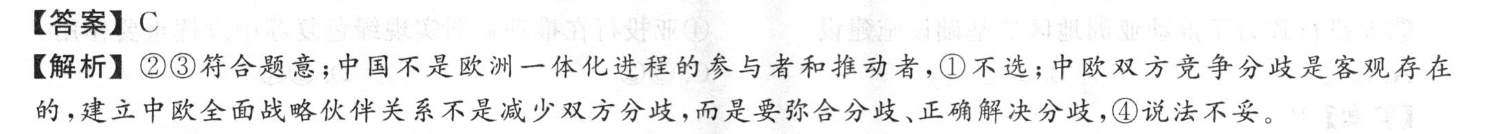 【答案】C
【解析】②③符合题意;中国不是欧洲一体化进程的参与者和推动者,①不选;中欧双方竞争分歧是客观存在
的,建立中欧全面战略伙伴关系不是减少双方分歧,而是要弥合分歧、正确解决分歧,④说法不妥。